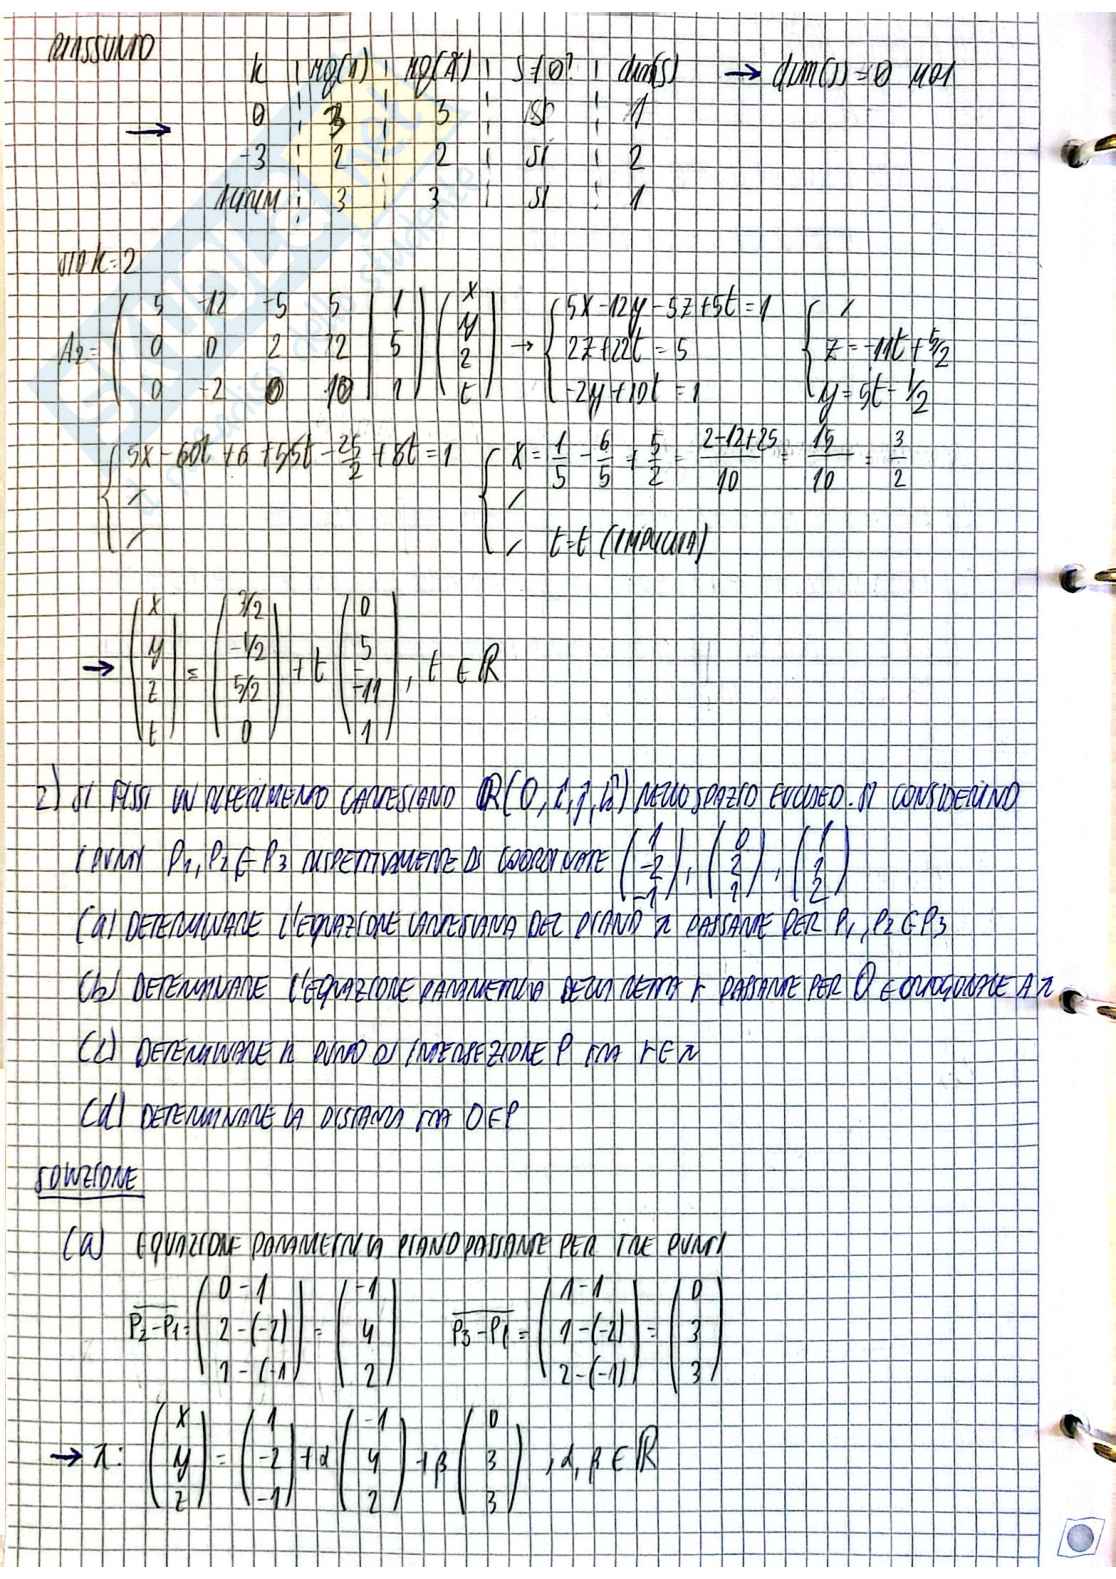 RIASSUNTO
k | rg(A) | rg(Ã) | S≠∅? | dim(S) → dim(S)=0 MAI
→ 0 | 3 | 3 | SI | 1
-3 | 2 | 2 | SI | 2
ALTRIM | 3 | 3 | SI | 1
SIA k=2
A2= ( 5 -12 -5 5 | 1 ) ( x ) → { 5x-12y-5z+5t=1 { /
( 0 0 2 22 | 5 ) ( y ) { 2z+22t=5 { z=-11t+5/2
( 0 -2 0 10 | 1 ) ( z t ) { -2y+10t=1 { y=5t-1/2
{ 5x-60t+6+55t-25/2+5t=1 { x=1/5-6/5+5/2=(2-12+25)/10=15/10=3/2
{ / { /
{ / { / t=t (IMPLICITA)
→ (x y z t) = (3/2 -1/2 5/2 0) + t (0 5 -11 1), t ∈ ℝ
2) SI FISSI UN RIFERIMENTO CARTESIANO R(O,i,j,k) NELLO SPAZIO EUCLIDEO. SI CONSIDERINO
I PUNTI P1, P2 E P3 RISPETTIVAMENTE DI COORDINATE (1 -2 -1), (0 2 1), (1 1 2)
(a) DETERMINARE L'EQUAZIONE CARTESIANA DEL PIANO π PASSANTE PER P1, P2 E P3
(b) DETERMINARE L'EQUAZIONE PARAMETRICA DELLA RETTA r PASSANTE PER O E ORTOGONALE A π
(c) DETERMINARE IL PUNTO DI INTERSEZIONE P TRA r E π
(d) DETERMINARE LA DISTANZA TRA O E P
SOLUZIONE
(a) EQUAZIONE PARAMETRICA PIANO PASSANTE PER TRE PUNTI
P2-P1= (0-1 2-(-2) 1-(-1) = (-1 4 2) P3-P1= (1-1 1-(-2) 2-(-1)) = (0 3 3)
→ π: (x y z) = (1 -2 -1) + α (-1 4 2) + β (0 3 3), α, β ∈ ℝ